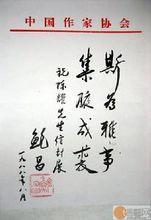 中国作家协会
斯为雅事
集腋成裘
祝陈 先生信封展
鲍昌
一九八八年八月